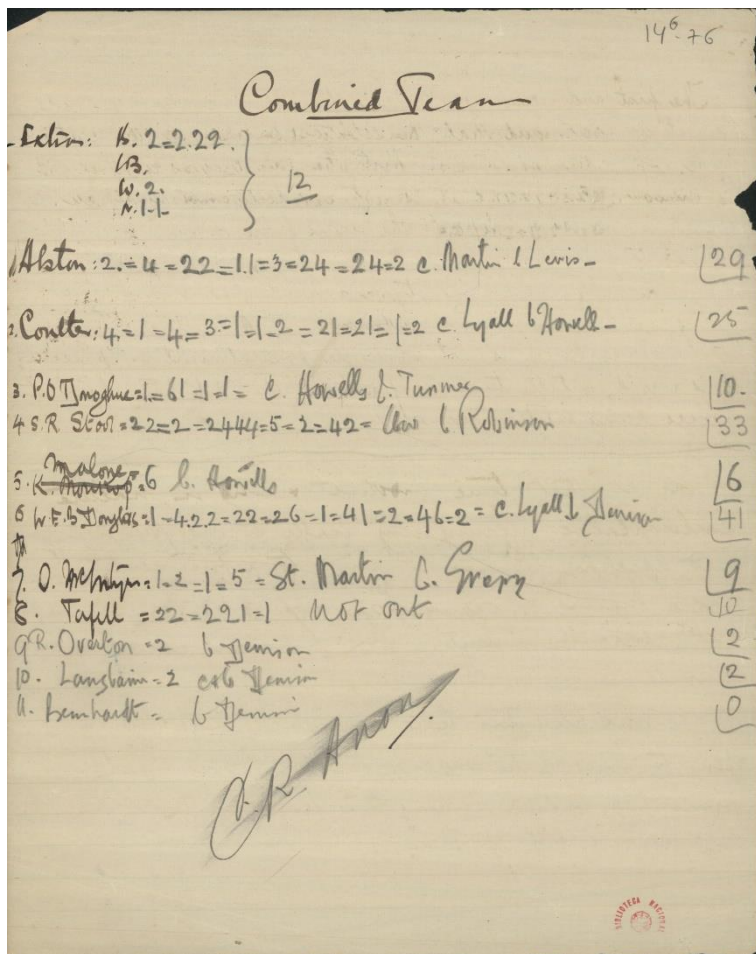 14⁶-76
Combined Team
Extras: B. 2=2.22.
LB.
W. 2.
N. 1-1-
12
1 Alston: 2.=4=22=1.1=3=24=24=2 c. Martin b Lewis- 29
2. Coulter: 4.=1=4=3.=1=1-2=21=21=1=2 c. Lyall b Howell- 25
3. P.O'Donoghue=1.=61=1=1= c. Howells b. 10.
4 S.R. =22=2=2444=5=2=42= b Robinson 33
Malone
5. K. =6 b. Howells 6
6 W.E.B Douglas=1=4.2.2=22=26=1=41=2=46=2= c. Lyall b Denison 41
7. O. McIntyre=1=2=1=5= St. Martin b. 9
8. =22=221=1 Not out 10
9 R. Overton=2 b Denison 2
10. Langbain=2 c&b Denison 2
11. Bernhardt= b Denison 0
BIBLIOTECA NACIONAL